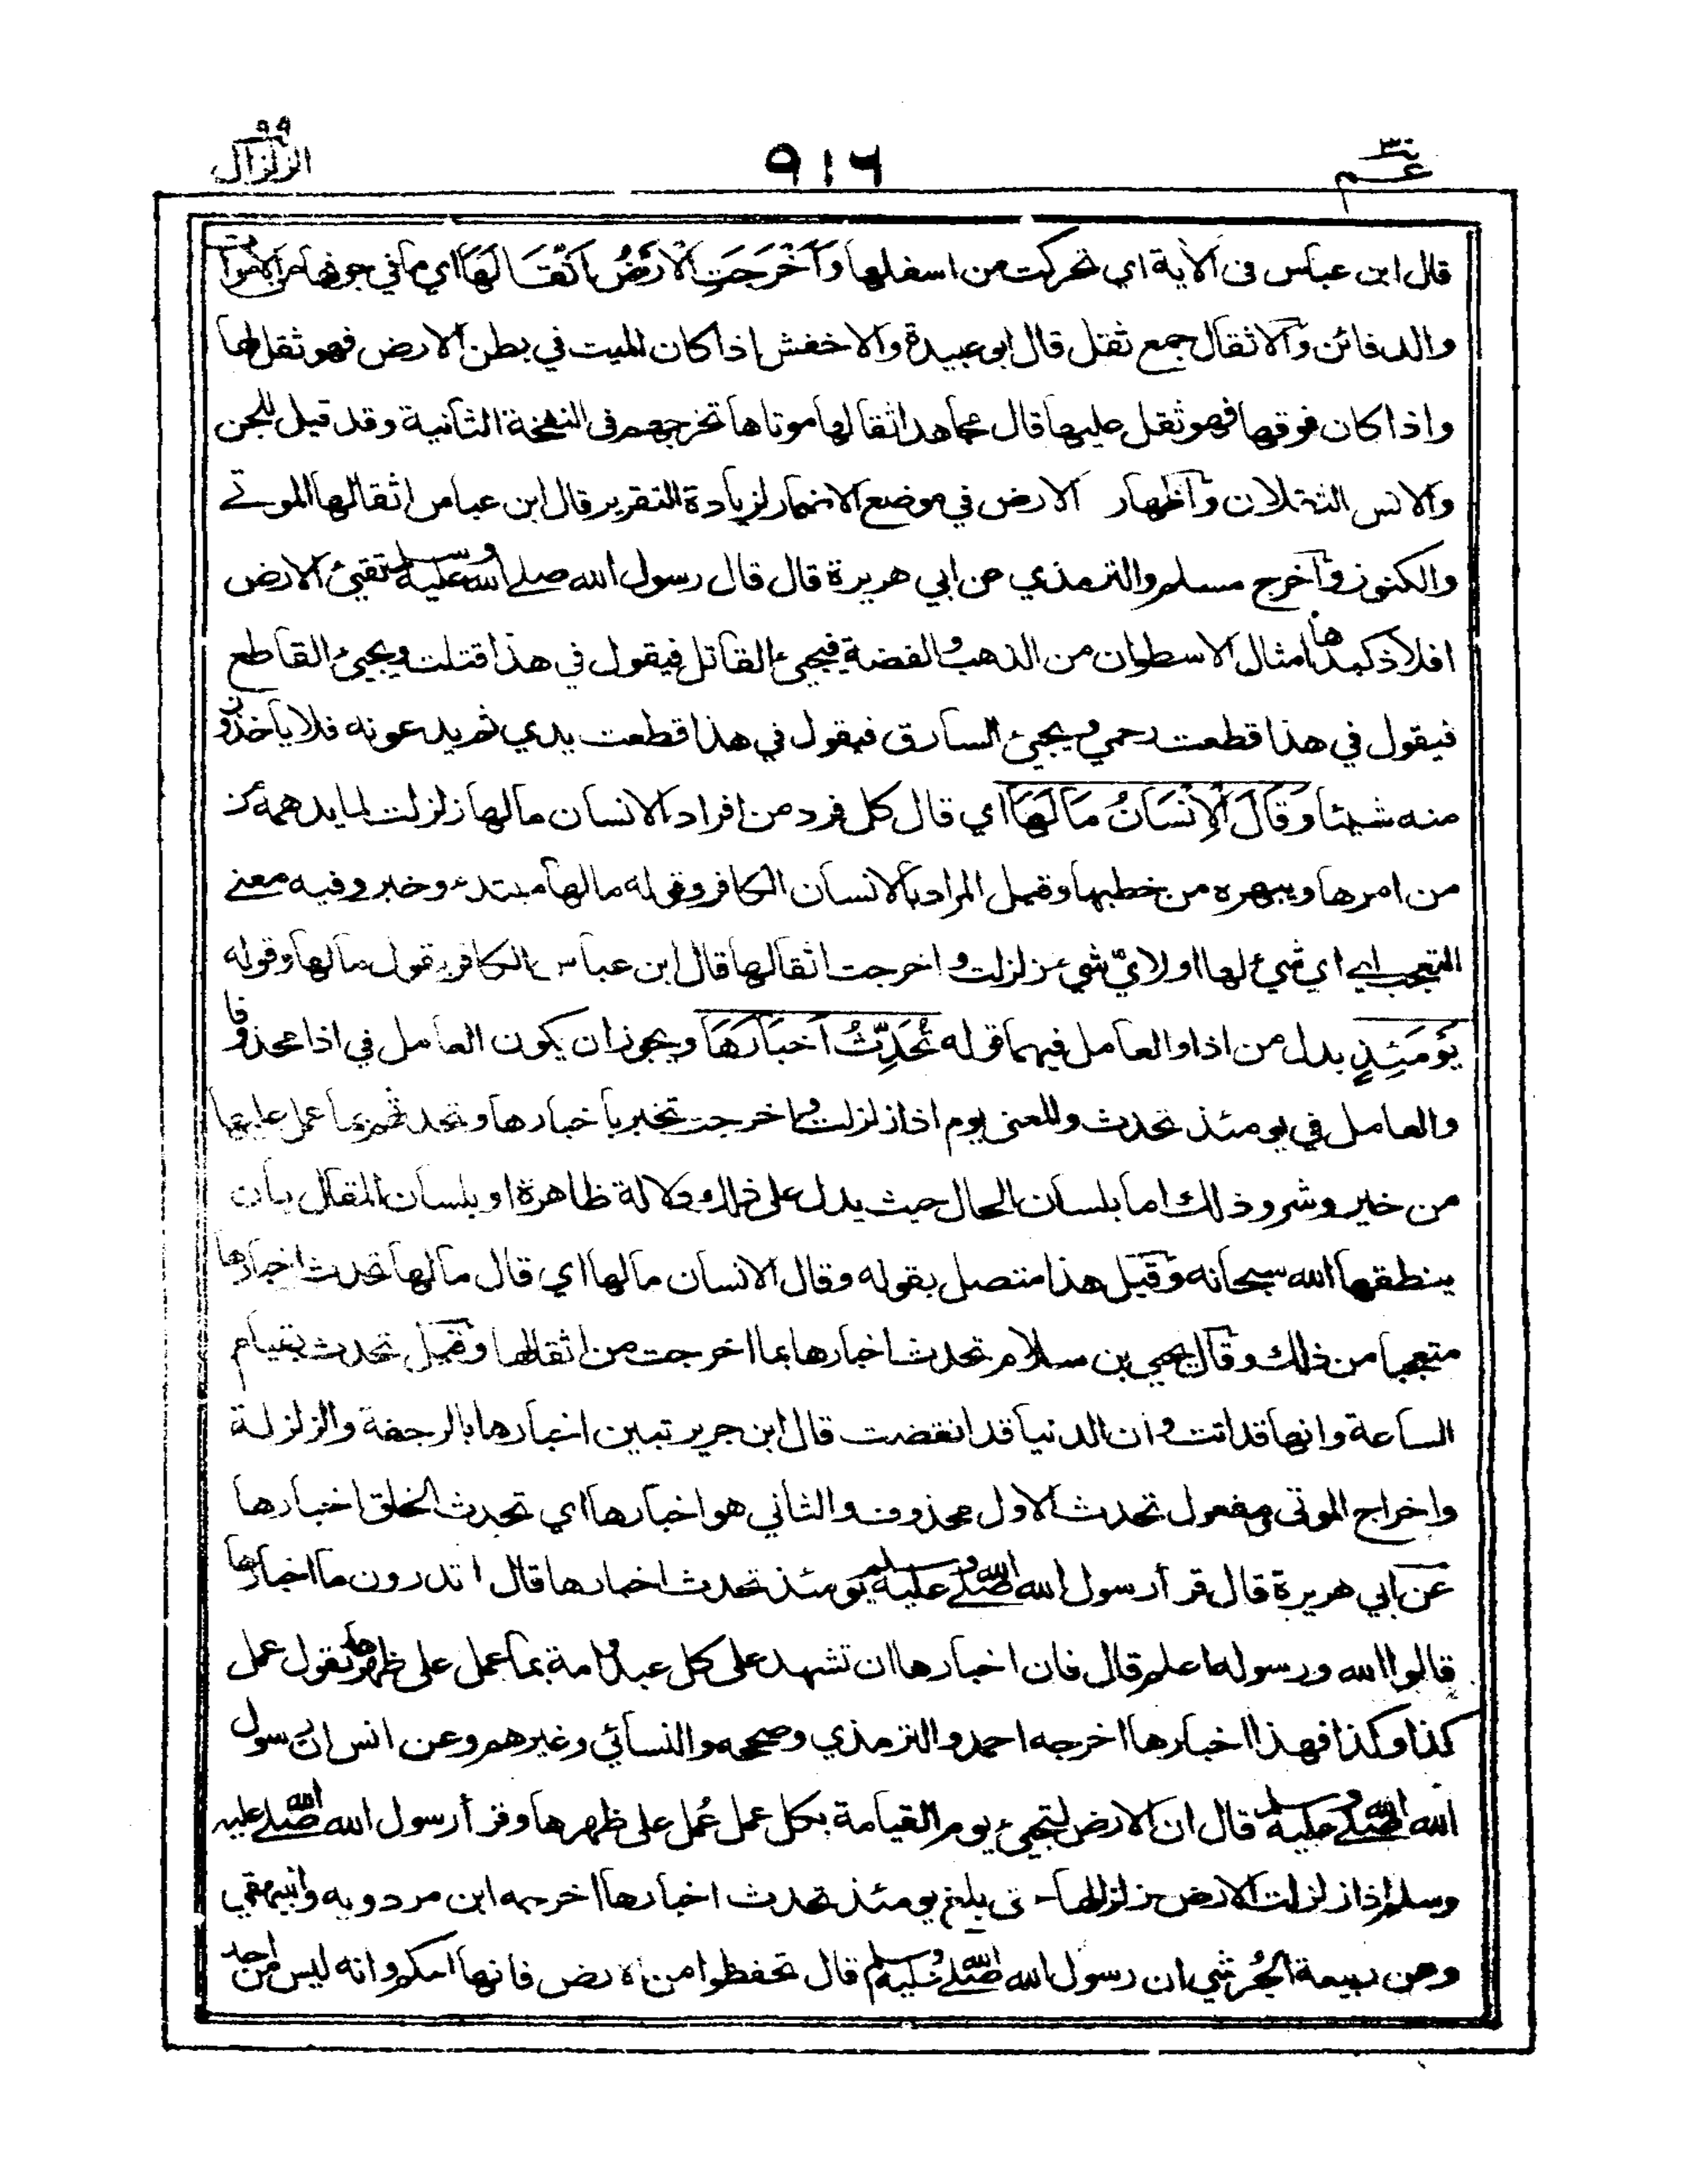 عم ٣٠
٩١٦
الزلزال ٩٩
قال ابن عباس فى الاٰية اي تحركت من اسفلها وَاَخْرَجَتِ الْاَرْضُ اَثْقَالَهَا اي ما في جوفها من الاموات
والدفائن والاثقال جمع ثقل قال ابو عبيدة والاخفش اذا كان الميت في بطن الارض فهو ثقل لها
واذا كان فوقها فهو ثقل عليها قال مجاهد اثقالها موتاها تخرجهم فى النفخة الثانية وقد قيل للجن
والانس الثقلان واظهار الارض في موضع الاضمار لزيادة التقرير قال ابن عباس اثقالها الموتے
والكنوز واخرج مسلم والترمذي عن ابي هريرة قال قال رسول الله صلے الله عليه وسلم تقيئ الارض
افلاذ كبدها امثال الاسطوان من الذهب والفضة فيجيئ القاتل فيقول في هذا قتلت ويجيئ القاطع
فيقول في هذا قطعت رحمي ويجيئ السارق فيقول في هذا قطعت يدي ثم يدعونه فلا ياخذون
منه شيئا وَقَالَ الْاِنْسَانُ مَا لَهَا اي قال كل فرد من افراد الانسان ما لها زلزلت لما يدهمه
من امرها ويبهره من خطبها وقيل المراد بالانسان الكافر وقوله ما لها مبتدء وخبر وفيه معنے
التعجب اي اي شيئ لها او لايّ شيئ زلزلت واخرجت اثقالها قال ابن عباس الكافر يقول ما لها وقوله
يَوْمَئِذٍ بدل من اذا والعامل فيهما قوله تُحَدِّثُ اَخْبَارَهَا ويجوز ان يكون العامل في اذا محذوفا
والعامل في يومئذ تحدث والمعنى يوم اذا زلزلت واخرجت تخبر باخبارها وتحدثهم بما عمل عليها
من خير وشر وذلك اما بلسان الحال حيث يدل على ذلك دلالة ظاهرة او بلسان المقال بان
ينطقها الله سبحانه وقيل هذا متصل بقوله وقال الانسان ما لها اي قال ما لها تحدث اخبارها
متعجبا من ذلك وقال يحيي بن سلام تحدث اخبارها بما اخرجت من اثقالها وقيل تحدث بقيام
الساعة وانها قد اتت وان الدنيا قد انقضت قال ابن جرير تبين اخبارها بالرجفة والزلزلة
واخراج الموتى ومفعول تحدث الاول محذوف والثاني هو اخبارها اي تحدث الخلق اخبارها
عن ابي هريرة قال قرأ رسول الله صلے الله عليه وسلم يومئذ تحدث اخبارها قال اتدرون ما اخبارها
قالوا الله ورسوله اعلم قال فان اخبارها ان تشهد على كل عبد وامة بما عمل على ظهرها تقول عمل
كذا وكذا فهذا اخبارها اخرجه احمد والترمذي وصححه والنسائي وغيرهم وعن انس ان رسول
الله صلے الله عليه وسلم قال ان الارض لتجيئ يوم القيامة بكل عمل عُمل على ظهرها وقرأ رسول الله صلے الله عليه
وسلم اذا زلزلت الارض زلزالها حتى بلغ يومئذ تحدث اخبارها اخرجه ابن مردويه والبيهقي
وعن ربيعة الجُرشي ان رسول الله صلے الله عليه وسلم قال تحفظوا من الارض فانها امكم وانه ليس من احد